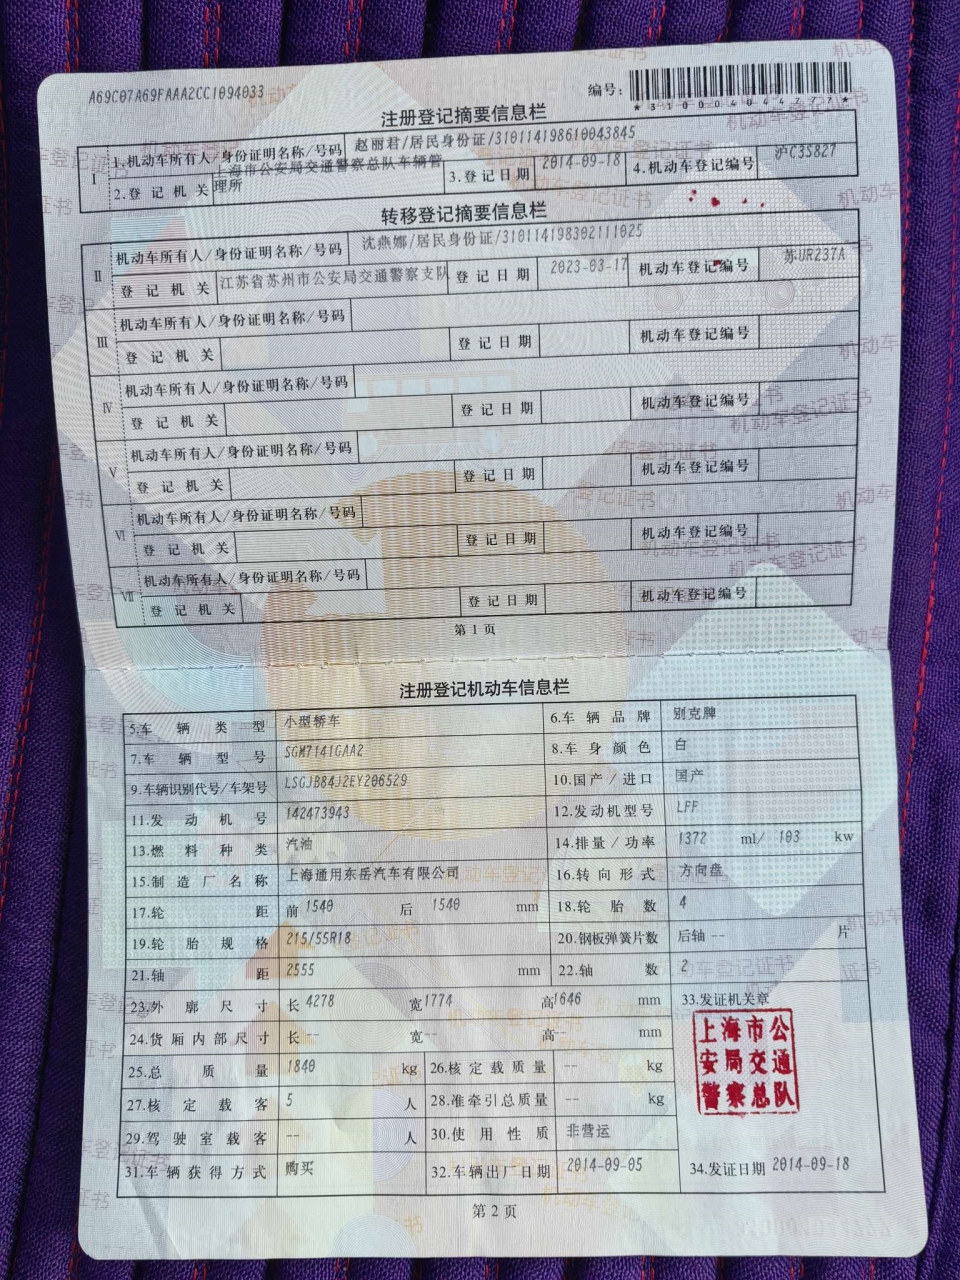 A69C07A69FAAA2CC1094033
编号：
*310004044277*
注册登记摘要信息栏
Ⅰ 1.机动车所有人/身份证明名称/号码 赵丽君/居民身份证/310114198610043845
2.登记机关 上海市公安局交通警察总队车辆管理所 3.登记日期 2014-09-18 4.机动车登记编号 沪C3S827
转移登记摘要信息栏
Ⅱ 机动车所有人/身份证明名称/号码 沈燕娜/居民身份证/310114198302111025
登记机关 江苏省苏州市公安局交通警察支队 登记日期 2023-03-17 机动车登记编号 苏UR237A
Ⅲ 机动车所有人/身份证明名称/号码
登记机关 登记日期 机动车登记编号
Ⅳ 机动车所有人/身份证明名称/号码
登记机关 登记日期 机动车登记编号
Ⅴ 机动车所有人/身份证明名称/号码
登记机关 登记日期 机动车登记编号
Ⅵ 机动车所有人/身份证明名称/号码
登记机关 登记日期 机动车登记编号
Ⅶ 机动车所有人/身份证明名称/号码
登记机关 登记日期 机动车登记编号
第1页
注册登记机动车信息栏
5.车辆类型 小型轿车 6.车辆品牌 别克牌
7.车辆型号 SGM7141GAA2 8.车身颜色 白
9.车辆识别代号/车架号 LSGJB84J2EY206529 10.国产/进口 国产
11.发动机号 142473943 12.发动机型号 LFF
13.燃料种类 汽油 14.排量/功率 1372 ml/ 103 kw
15.制造厂名称 上海通用东岳汽车有限公司 16.转向形式 方向盘
17.轮距 前 1540 后 1540 mm 18.轮胎数 4
19.轮胎规格 215/55R18 20.钢板弹簧片数 后轴 -- 片
21.轴距 2555 mm 22.轴数 2
23.外廓尺寸 长 4278 宽 1774 高 1646 mm 33.发证机关章
24.货厢内部尺寸 长 -- 宽 -- 高 -- mm
上海市公安局交通警察总队
25.总质量 1840 kg 26.核定载质量 -- kg
27.核定载客 5 人 28.准牵引总质量 -- kg
29.驾驶室载客 -- 人 30.使用性质 非营运
31.车辆获得方式 购买 32.车辆出厂日期 2014-09-05 34.发证日期 2014-09-18
第2页